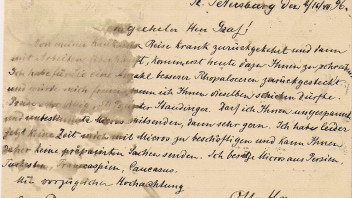 St. Petersburg den 2/14/VIII 96.
geehrter Herr Graf!
Von meiner Reise krank zurückgekehrt und dann
mit Arbeiten komme erst heute dazu Ihnen zu schreiben
Ich habe für Sie eine Anzahl besserer Rhopaloceren zurückgesteckt
und würde mich freuen wenn ich Ihnen dieselben schicken dürfte
Staudinger. Darf ich Ihnen ungespannte
und unbestimmte Micros mitsenden, dann sehr gern. Ich habe leider
jetzt keine Zeit mich mit Micros zu beschäftigen und kann Ihnen
daher keine präparirten Sachen senden. Ich besitze Micros aus Persien,
Turkestan, Transcaspien, Caucasus.
Mit vorzüglicher Hochachtung